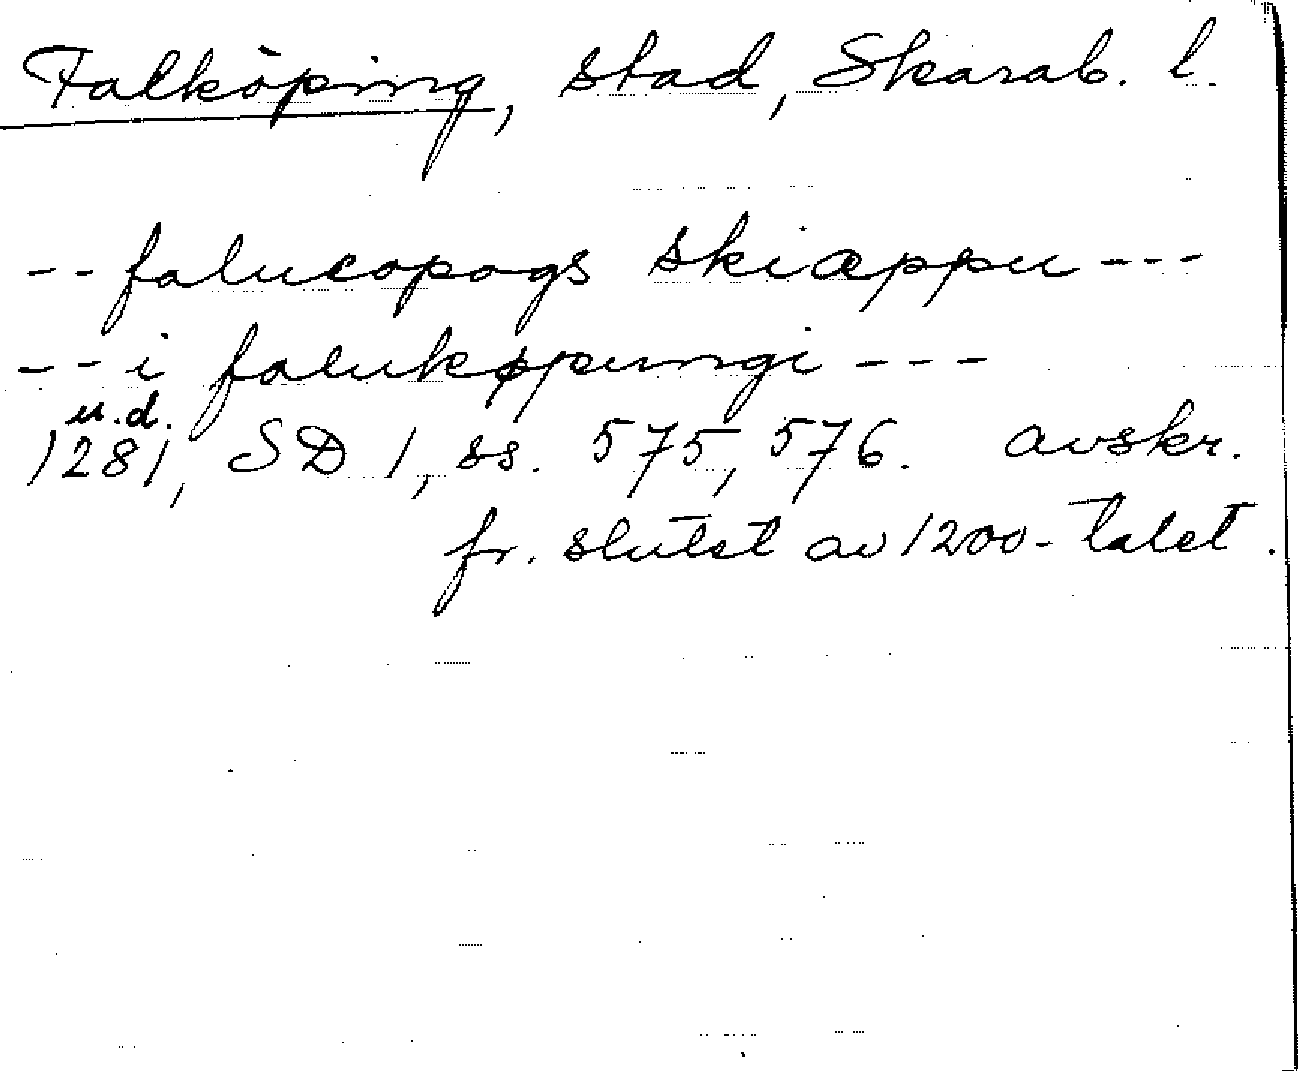 Falköping, stad, Skarab. l.
-- falucopogs skiæppu ---
-- i falukøpungi ---
u.d.
1281, SD 1, ss. 575, 576. avskr.
fr. slutet av 1200-talet.